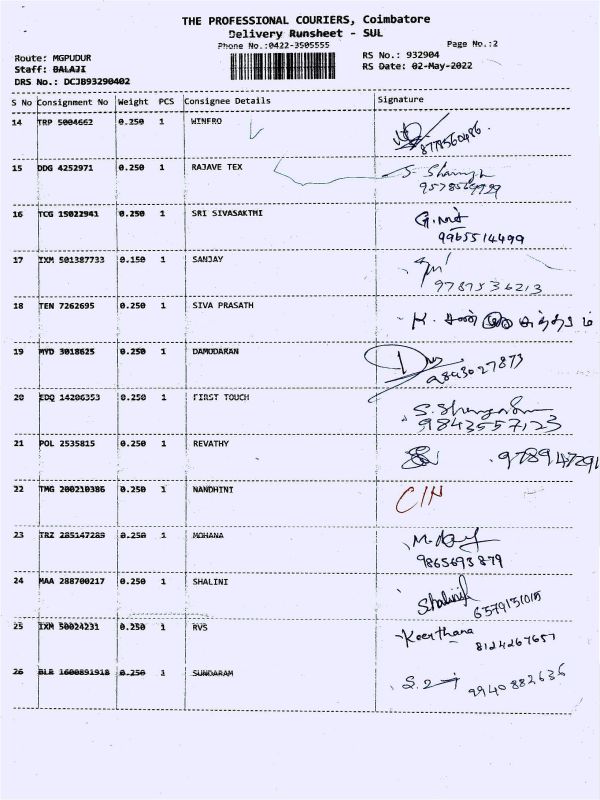 THE PROFESSIONAL COURIERS, Coimbatore
Delivery Runsheet - SUL
Phone No.:0422-3505555
Page No.:2
Route: MGPUDUR
RS No.: 932904
Staff: BALAJI
RS Date: 02-May-2022
DRS No.: DCJB93290402
S No Consignment No Weight PCS Consignee Details Signature
14 TRP 5004662 0.250 1 WINFRO
8778560486.
15 DDG 4252971 0.250 1 RAJAVE TEX
16 TCG 15022941 0.250 1 SRI SIVASAKTHI
9965514499
17 IXM 501387733 0.150 1 SANJAY
9787536213
18 TEN 7262695 0.250 1 SIVA PRASATH
19 MYD 3018625 0.250 1 DAMODARAN
9843027873
20 EDQ 14206353 0.250 1 FIRST TOUCH
9843557123
21 POL 2535815 0.250 1 REVATHY
22 TMG 200210386 0.250 1 NANDHINI
23 TRZ 285147289 0.250 1 MOHANA
9865693879
24 MAA 288700217 0.250 1 SHALINI
Shalini
25 IXM 50024231 0.250 1 RVS
Keerthana
8124267657
26 BLR 1600891918 0.250 1 SUNDARAM
9940882636